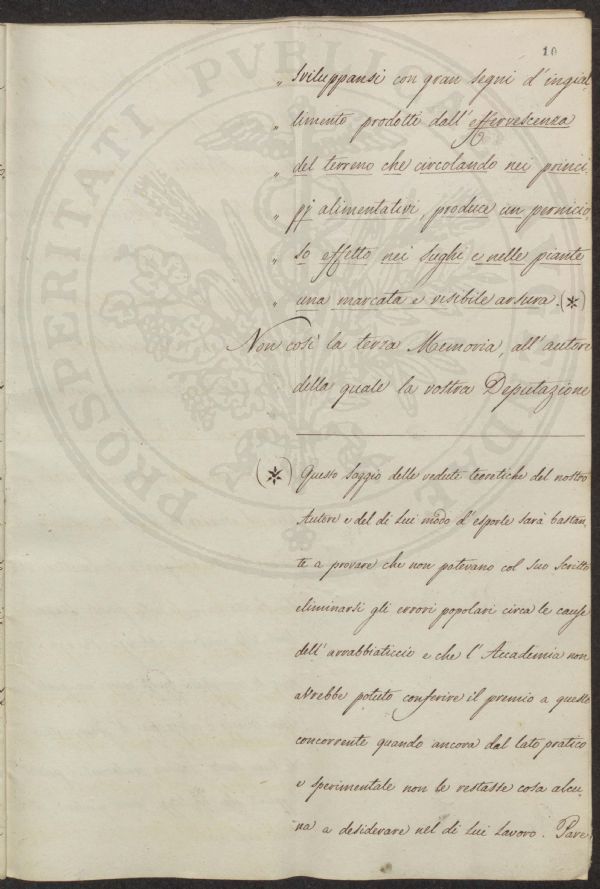 10
„ sviluppansi con gran segni d'ingial-
„ limento prodotti dall'effervescenza
„ del terreno che circolando nei princi
„ pj alimentativi, produce un pernicio-
„ so effetto nei sughi e nelle piante
„ una marcata e visibile arsura. (*)
Non così la terza Memoria, all'autore
della quale la vostra Deputazione
(*) Questo saggio delle vedute teoretiche del nostro
Autore e del di Lui modo d'esporle sarà bastan-
te a provare che non potevano col suo scritto
eliminarsi gli errori popolari circa le cause
dell'arrabbiaticcio e che l'Accademia non
avrebbe potuto conferire il premio a questo
concorrente quando ancora dal lato pratico
e sperimentale non le restasse cosa alcu-
na a desiderare nel di Lui Lavoro. Pare
PROSPERITATI PVBLICAE AVGENDAE